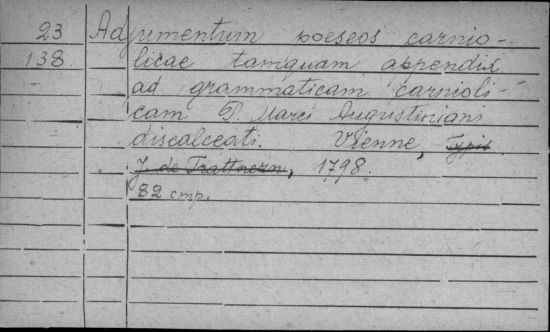 23 Adjumentum poeseos carnio-
138. licae tamquam appendix
ad grammaticam carnioli-
cam P. Marci Augustiniani
discalceati. Vienne, Typis
J. de Trattnern, 1798.
82 стр.